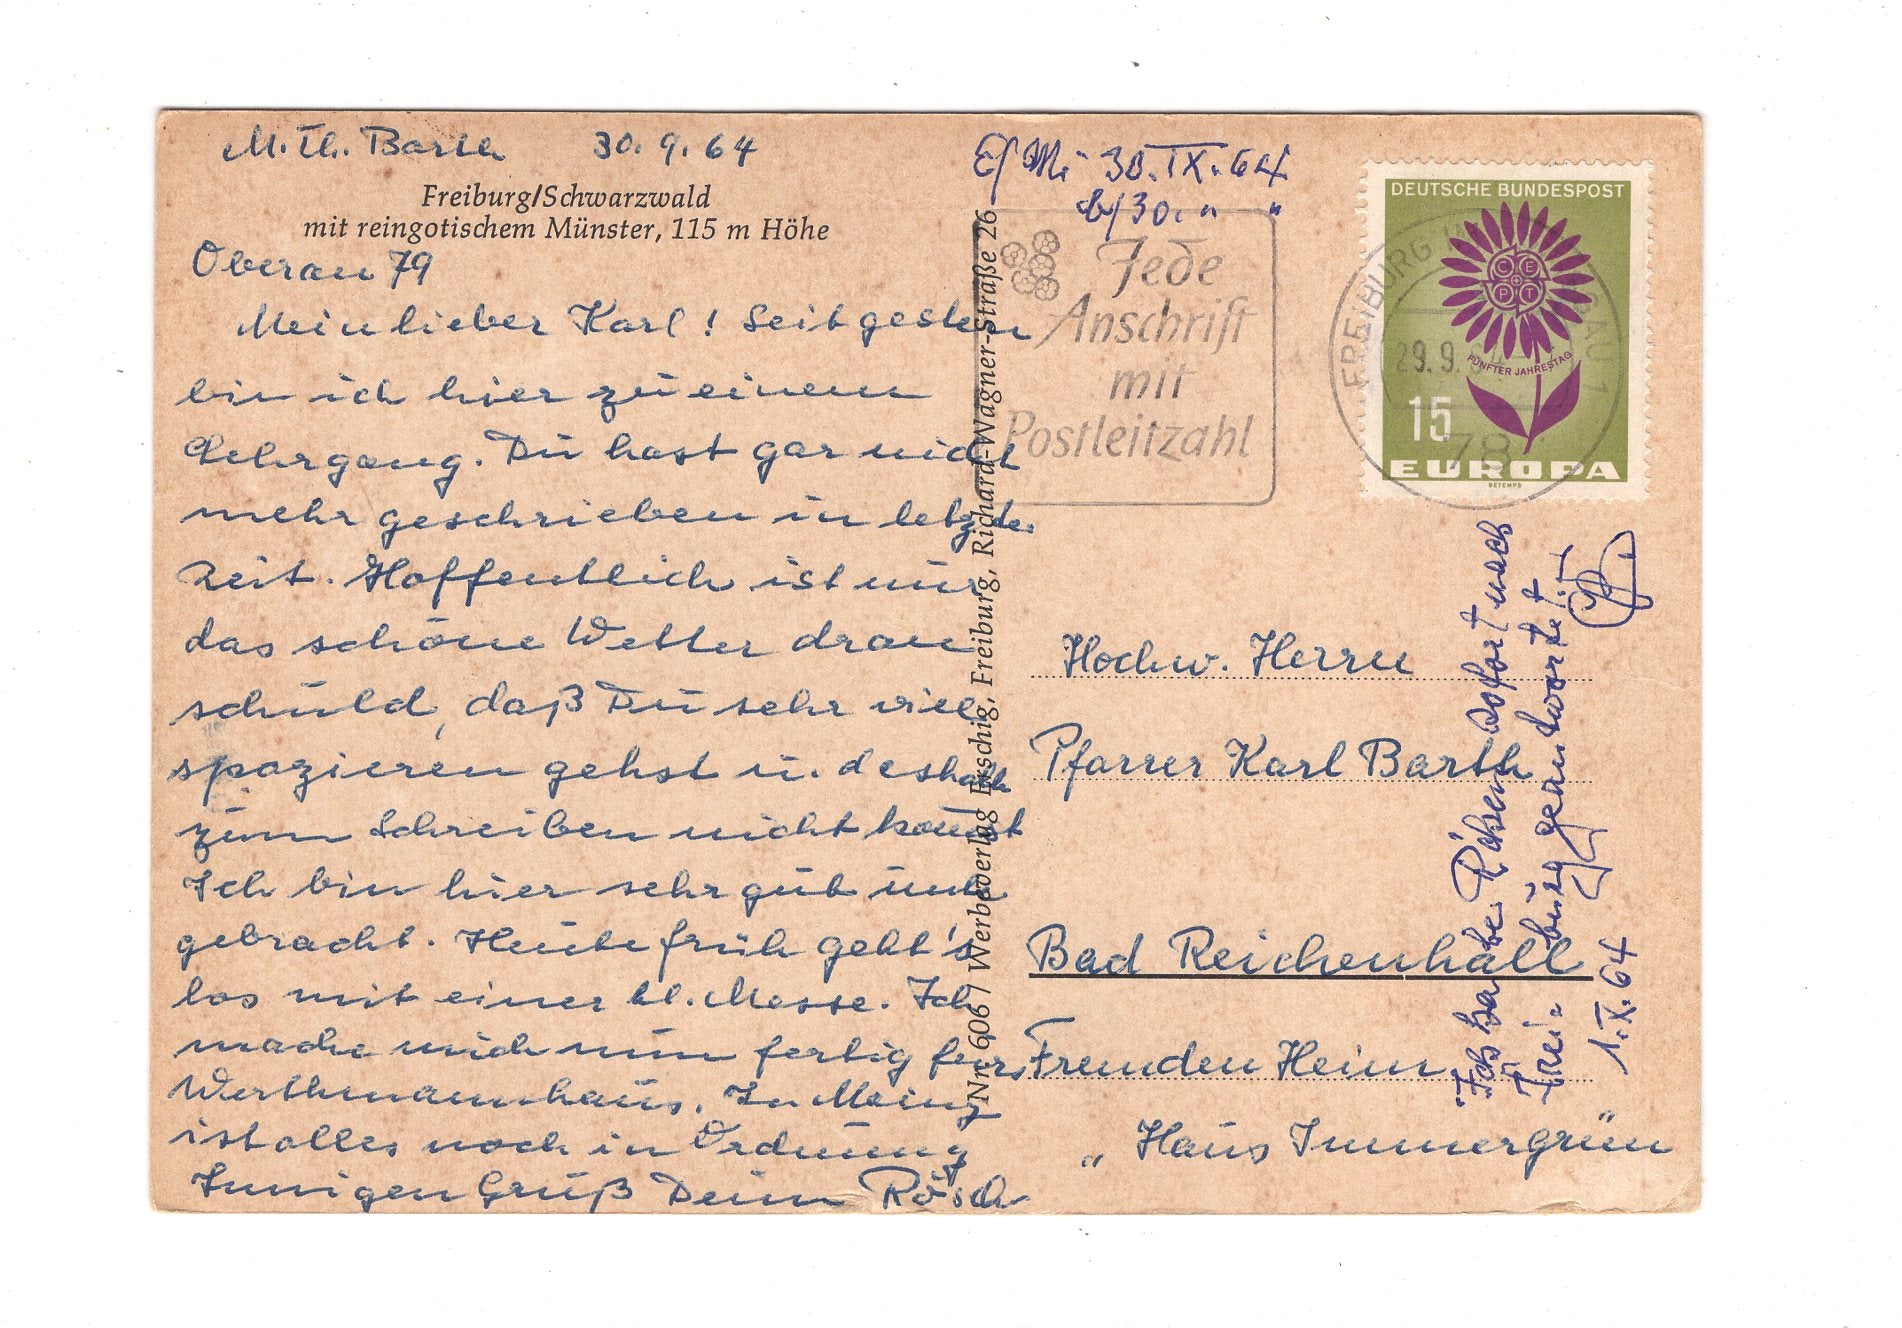 M. Th. Barth 30.9.64
Freiburg/Schwarzwald
mit reingotischem Münster, 115 m Höhe
Oberau 79
Mein lieber Karl! Seit gestern
bin ich hier zu einem
Lehrgang. Du hast gar nicht
mehr geschrieben in letzter
Zeit. Hoffentlich ist nur
das schöne Wetter dran
schuld, daß Du sehr viel
spazieren gehst u. deshalb
zum Schreiben nicht kommst
Ich bin hier sehr gut unter
gebracht. Heute früh geht's
los mit einer hl. Messe. Ich
mache mich nun fertig fürs
Werthmannhaus. In Mainz
ist alles noch in Ordnung
Innigen Gruß Dein Rösch
Nr. 606 / Werbeverlag Erschig, Freiburg, Richard-Wagner-Straße 26
E/Mi 30.IX.64
b/30. " "
Jede
Anschrift
mit
Postleitzahl
FREIBURG
29.9.64
78
DEUTSCHE BUNDESPOST
C E P T
FÜNFTER JAHRESTAG
15
EUROPA
BETEMPS
Hochw. Herrn
Pfarrer Karl Barth
Bad Reichenhall
Fremden Heim
„Haus Immergrün"
Ich habe sofort nach
Freiburg geantwortet.
1.X.64